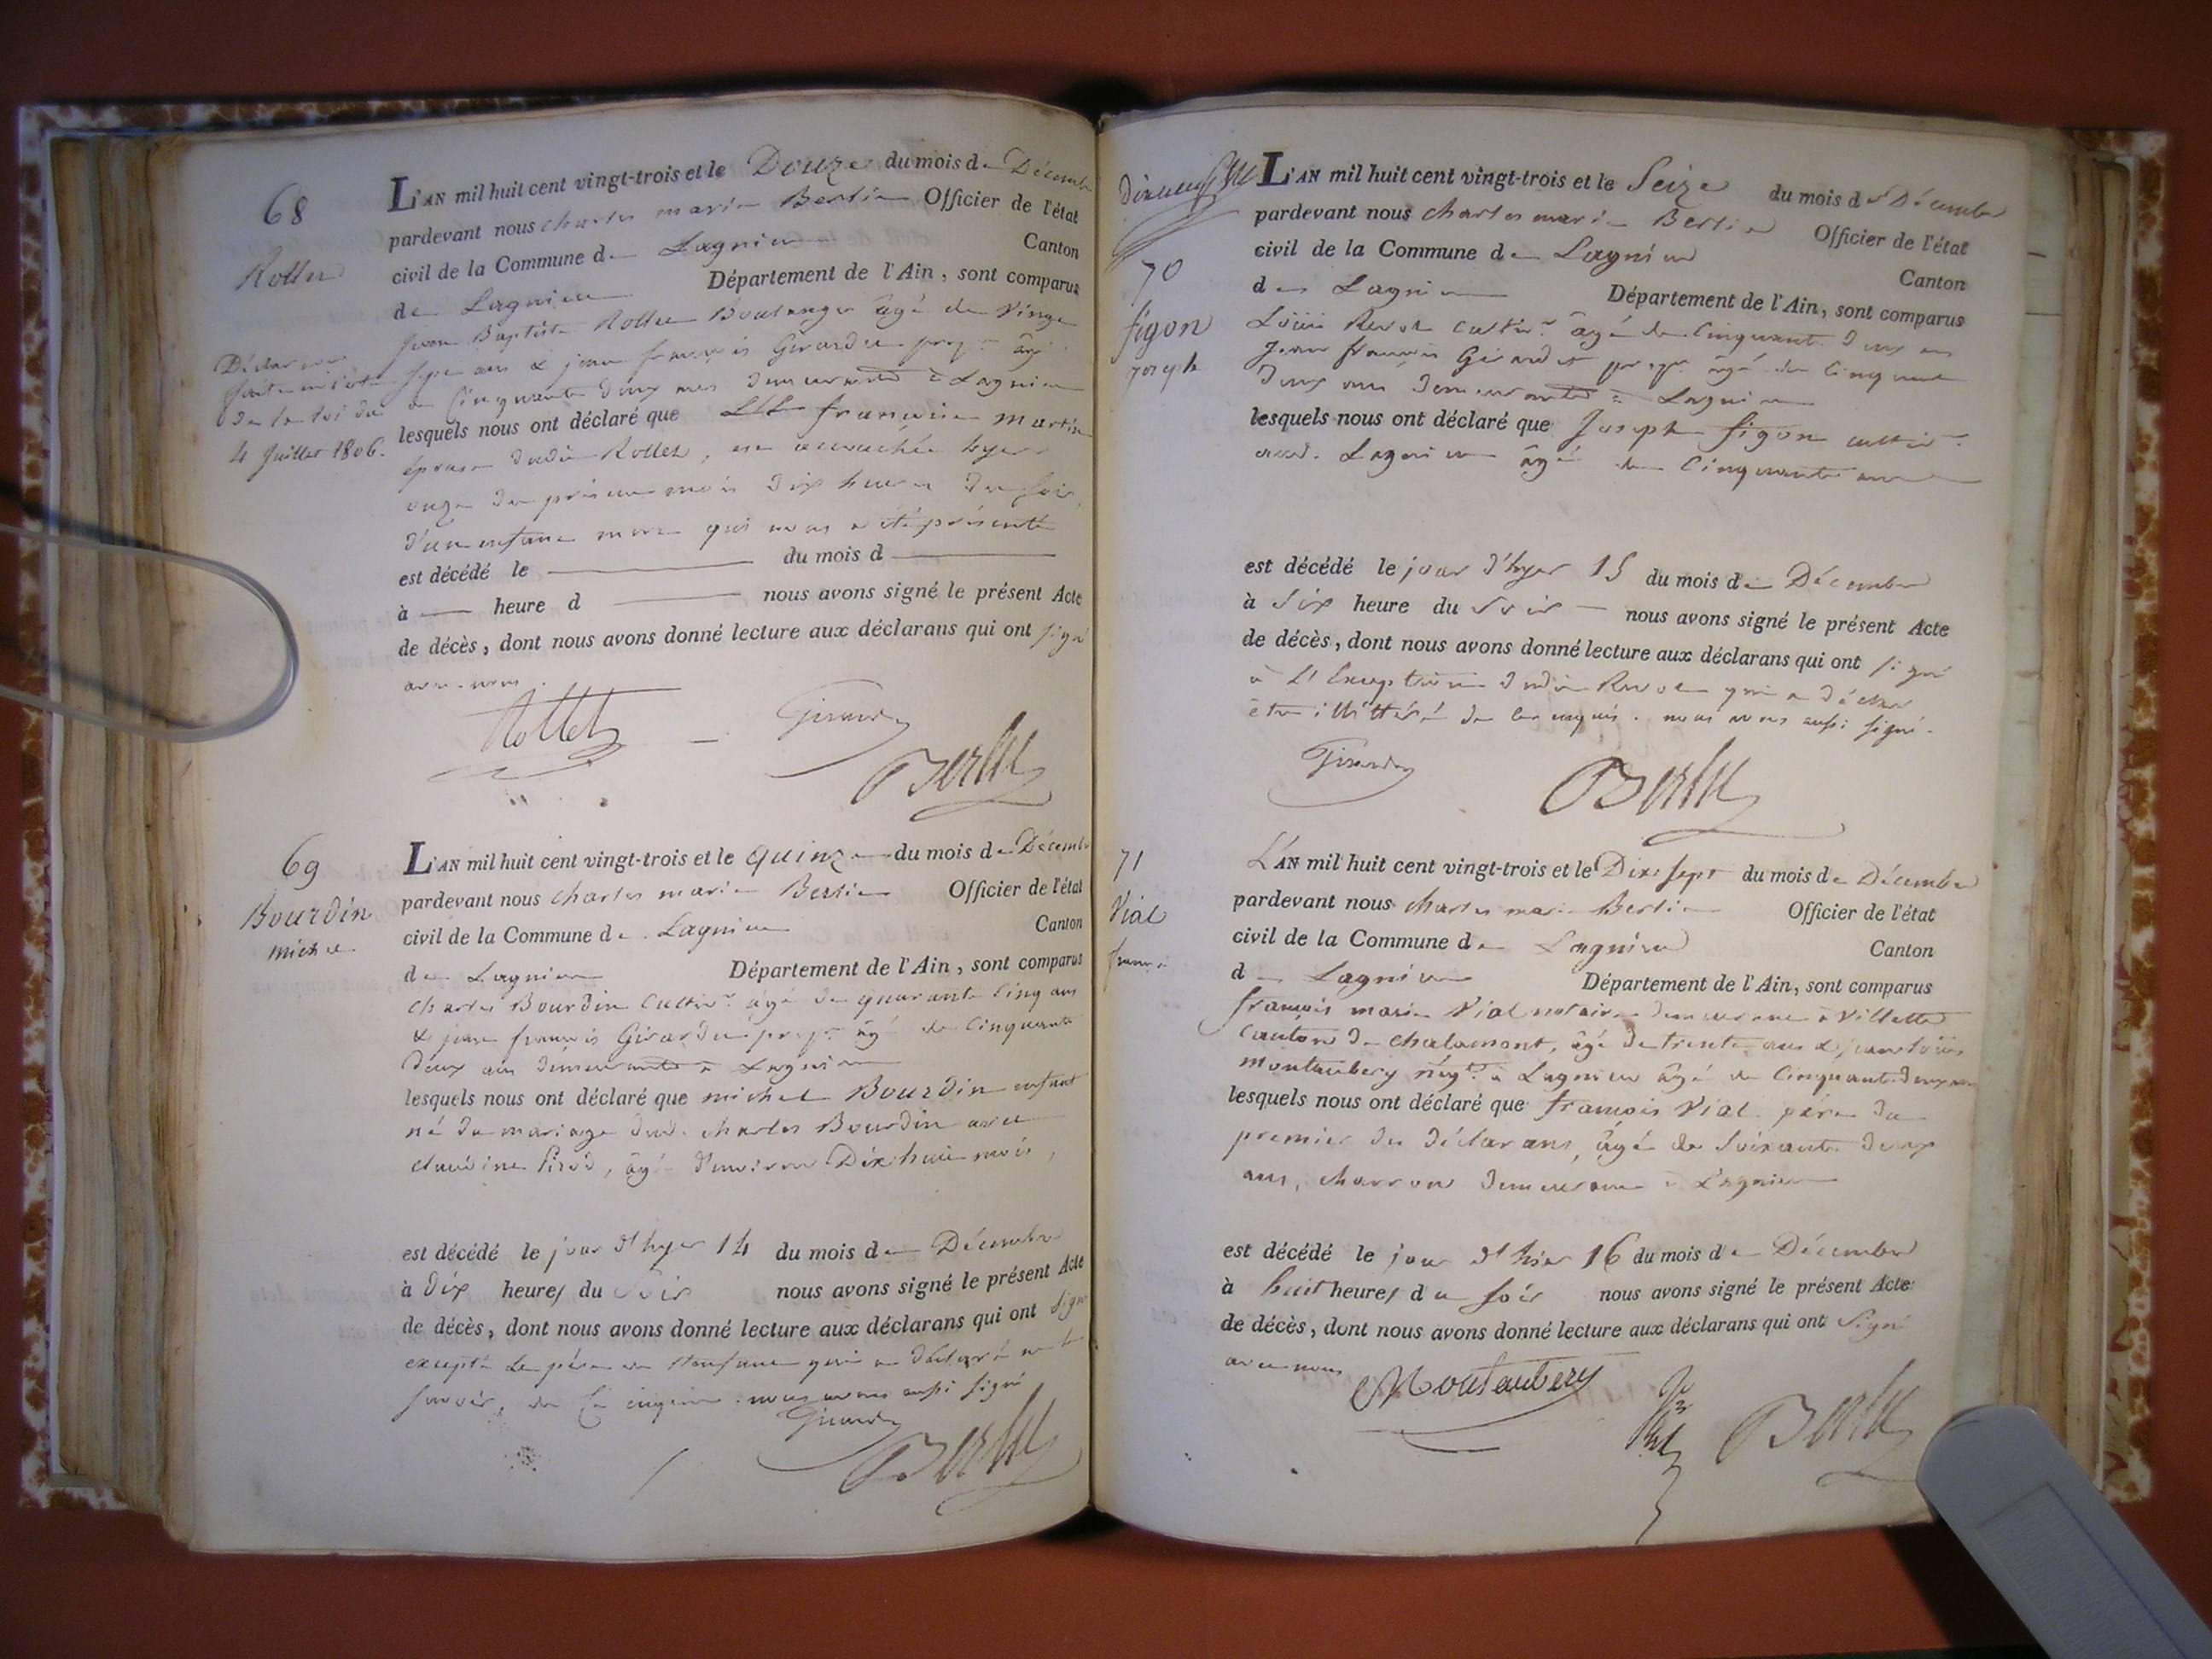 68
Rollet
Déclaration
faite en vertu
de la loi du
4 Juillet 1806.
L'AN mil huit cent vingt-trois et le Douze du mois de Décembre
pardevant nous charles marie Berlie Officier de l'état
civil de la Commune de Lagnieu Canton
de Lagnieu Département de l'Ain, sont comparus
Jean Baptiste Rollet Boulanger âgé de Vingt
sept ans & jean francois Girardet propre âgé
de Cinquante deux ans demeurants à Lagnieu
lesquels nous ont déclaré que francoise martin
épouse dudit Rollet, est accouchée hyer
onze du présent mois dix heures du soir,
d'un enfant mort qui nous a été présenté
est décédé le du mois d
à heure d nous avons signé le présent Acte
de décès, dont nous avons donné lecture aux déclarans qui ont signé
avec nous.
Rollet Girardet
Berlie
69
Bourdin
michel
L'AN mil huit cent vingt-trois et le quinze du mois de Décembre
pardevant nous charles marie Berlie Officier de l'état
civil de la Commune de Lagnieu Canton
de Lagnieu Département de l'Ain, sont comparus
charles Bourdin Cultivr. âgé de quarante Cinq ans
& jean francois Girardet propre âgé de Cinquante
deux ans demeurants à Lagnieu
lesquels nous ont déclaré que michel Bourdin enfant
né du mariage dud. charles Bourdin avec
claudine, âgé d'environ Dix huit mois,
est décédé le jour d'hyer 14 du mois de Décembre
à dix heures du soir nous avons signé le présent Acte
de décès, dont nous avons donné lecture aux déclarans qui ont signé
excepté le père de l'enfant qui a déclaré ne le
savoir, de ce enquis. nous avons aussi signé
Girardet
Berlie
70
figon
joseph
L'AN mil huit cent vingt-trois et le Seize du mois de Décembre
pardevant nous charles marie Berlie Officier de l'état
civil de la Commune de Lagnieu Canton
de Lagnieu Département de l'Ain, sont comparus
Louis Revol cultivr. âgé de Cinquante deux ans
Jean francois Girardet propre. âgé de Cinquante
deux ans demeurants à Lagnieu
lesquels nous ont déclaré que Joseph figon cultivr.
aud. Lagnieu âgé de Cinquante ans
est décédé le jour d'hyer 15 du mois de Décembre
à Six heure du Soir nous avons signé le présent Acte
de décès, dont nous avons donné lecture aux déclarans qui ont signé
à L'Exception dudit Revol qui a déclaré
être illittéré de ce enquis. nous avons aussi signé.
Girardet
Berlie
71
Vial
francois
L'AN mil huit cent vingt-trois et le Dix sept du mois de Décembre
pardevant nous charles marie Berlie Officier de l'état
civil de la Commune de Lagnieu Canton
de Lagnieu Département de l'Ain, sont comparus
francois marie Vial notaire demeurant à Villette
Canton de chalamont, âgé de trente ans & jean louis
montaubery négt. à Lagnieu âgé de Cinquante deux ans
lesquels nous ont déclaré que francois Vial père du
premier des déclarans, âgé de Soixante deux
ans, charron demeurant à Lagnieu
est décédé le jour d'hier 16 du mois de Décembre
à huit heures du soir nous avons signé le présent Acte
de décès, dont nous avons donné lecture aux déclarans qui ont Signé
avec nous
Montaubery
Berlie